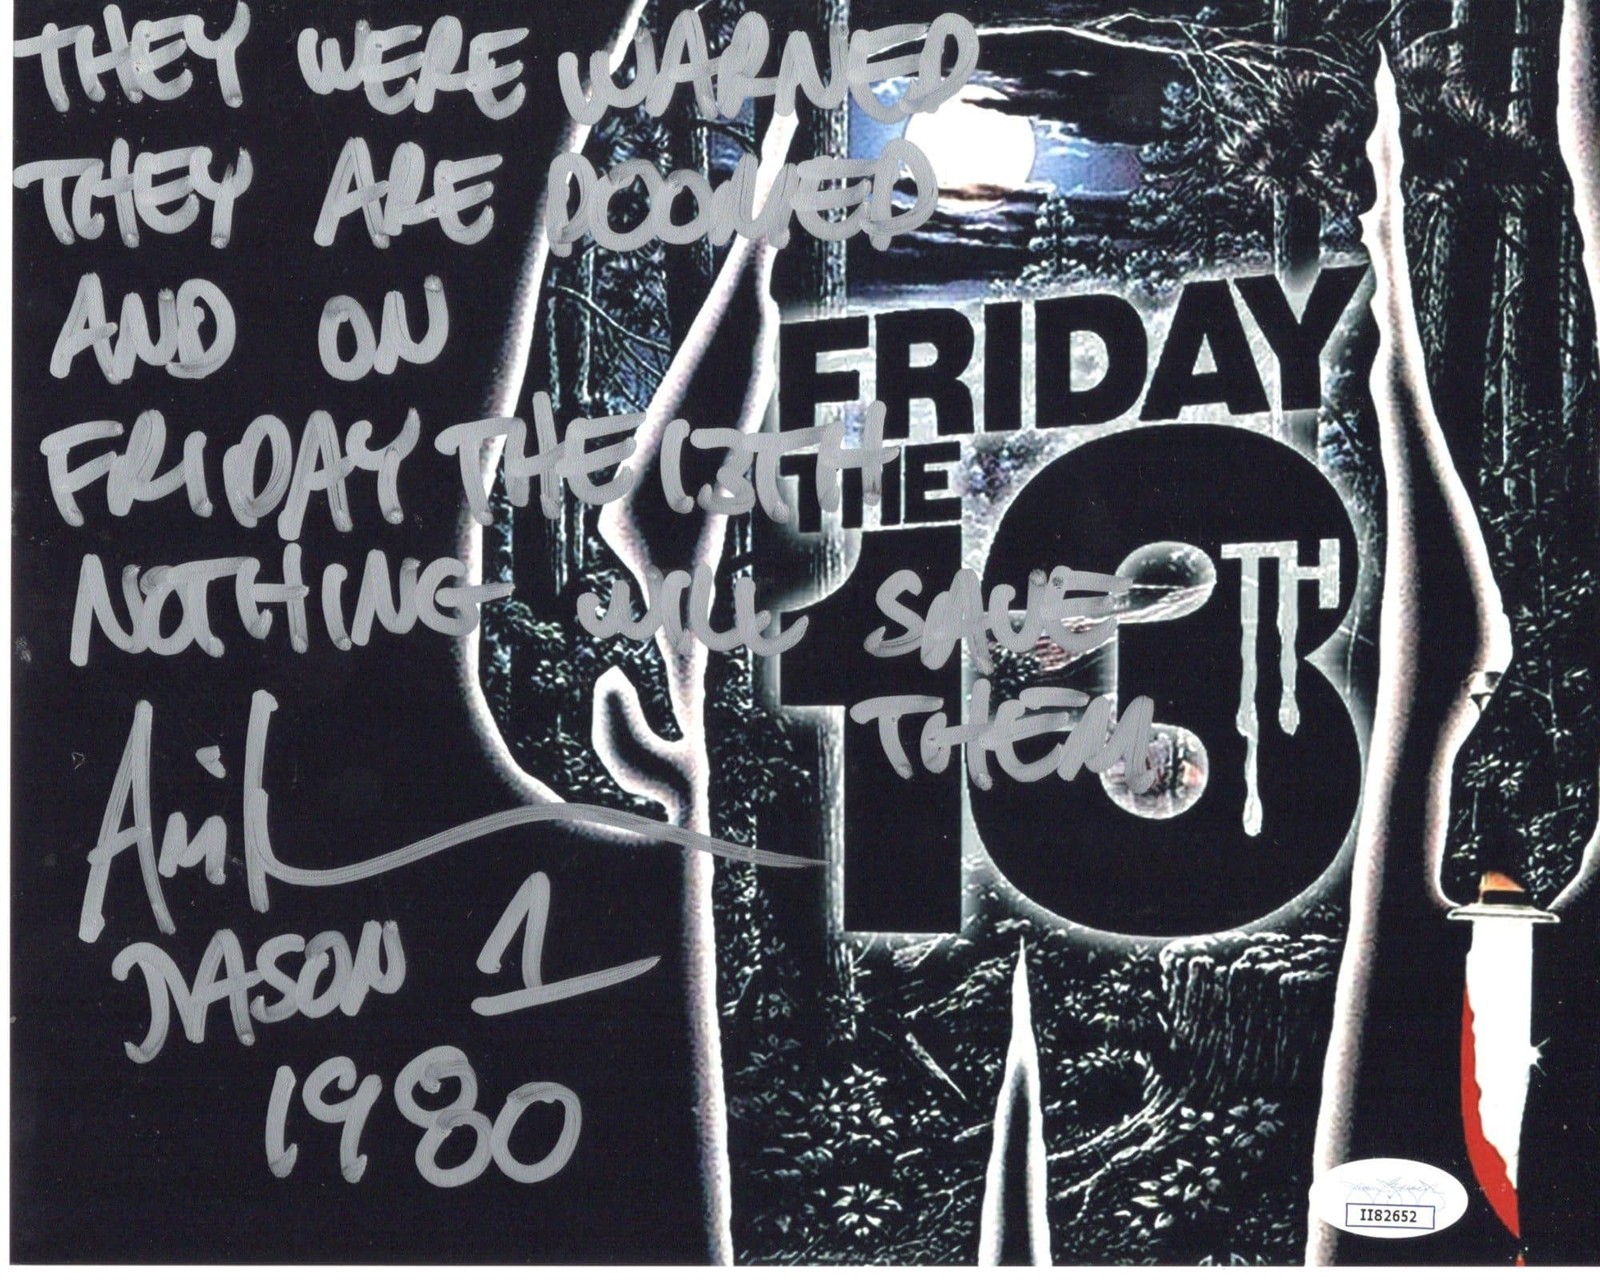 THEY WERE WARNED
THEY ARE DOOMED
AND ON
FRIDAY THE 13TH
NOTHING WILL SAVE
THEM
Ari
JASON 1
1980
FRIDAY
THE
13TH
II82652